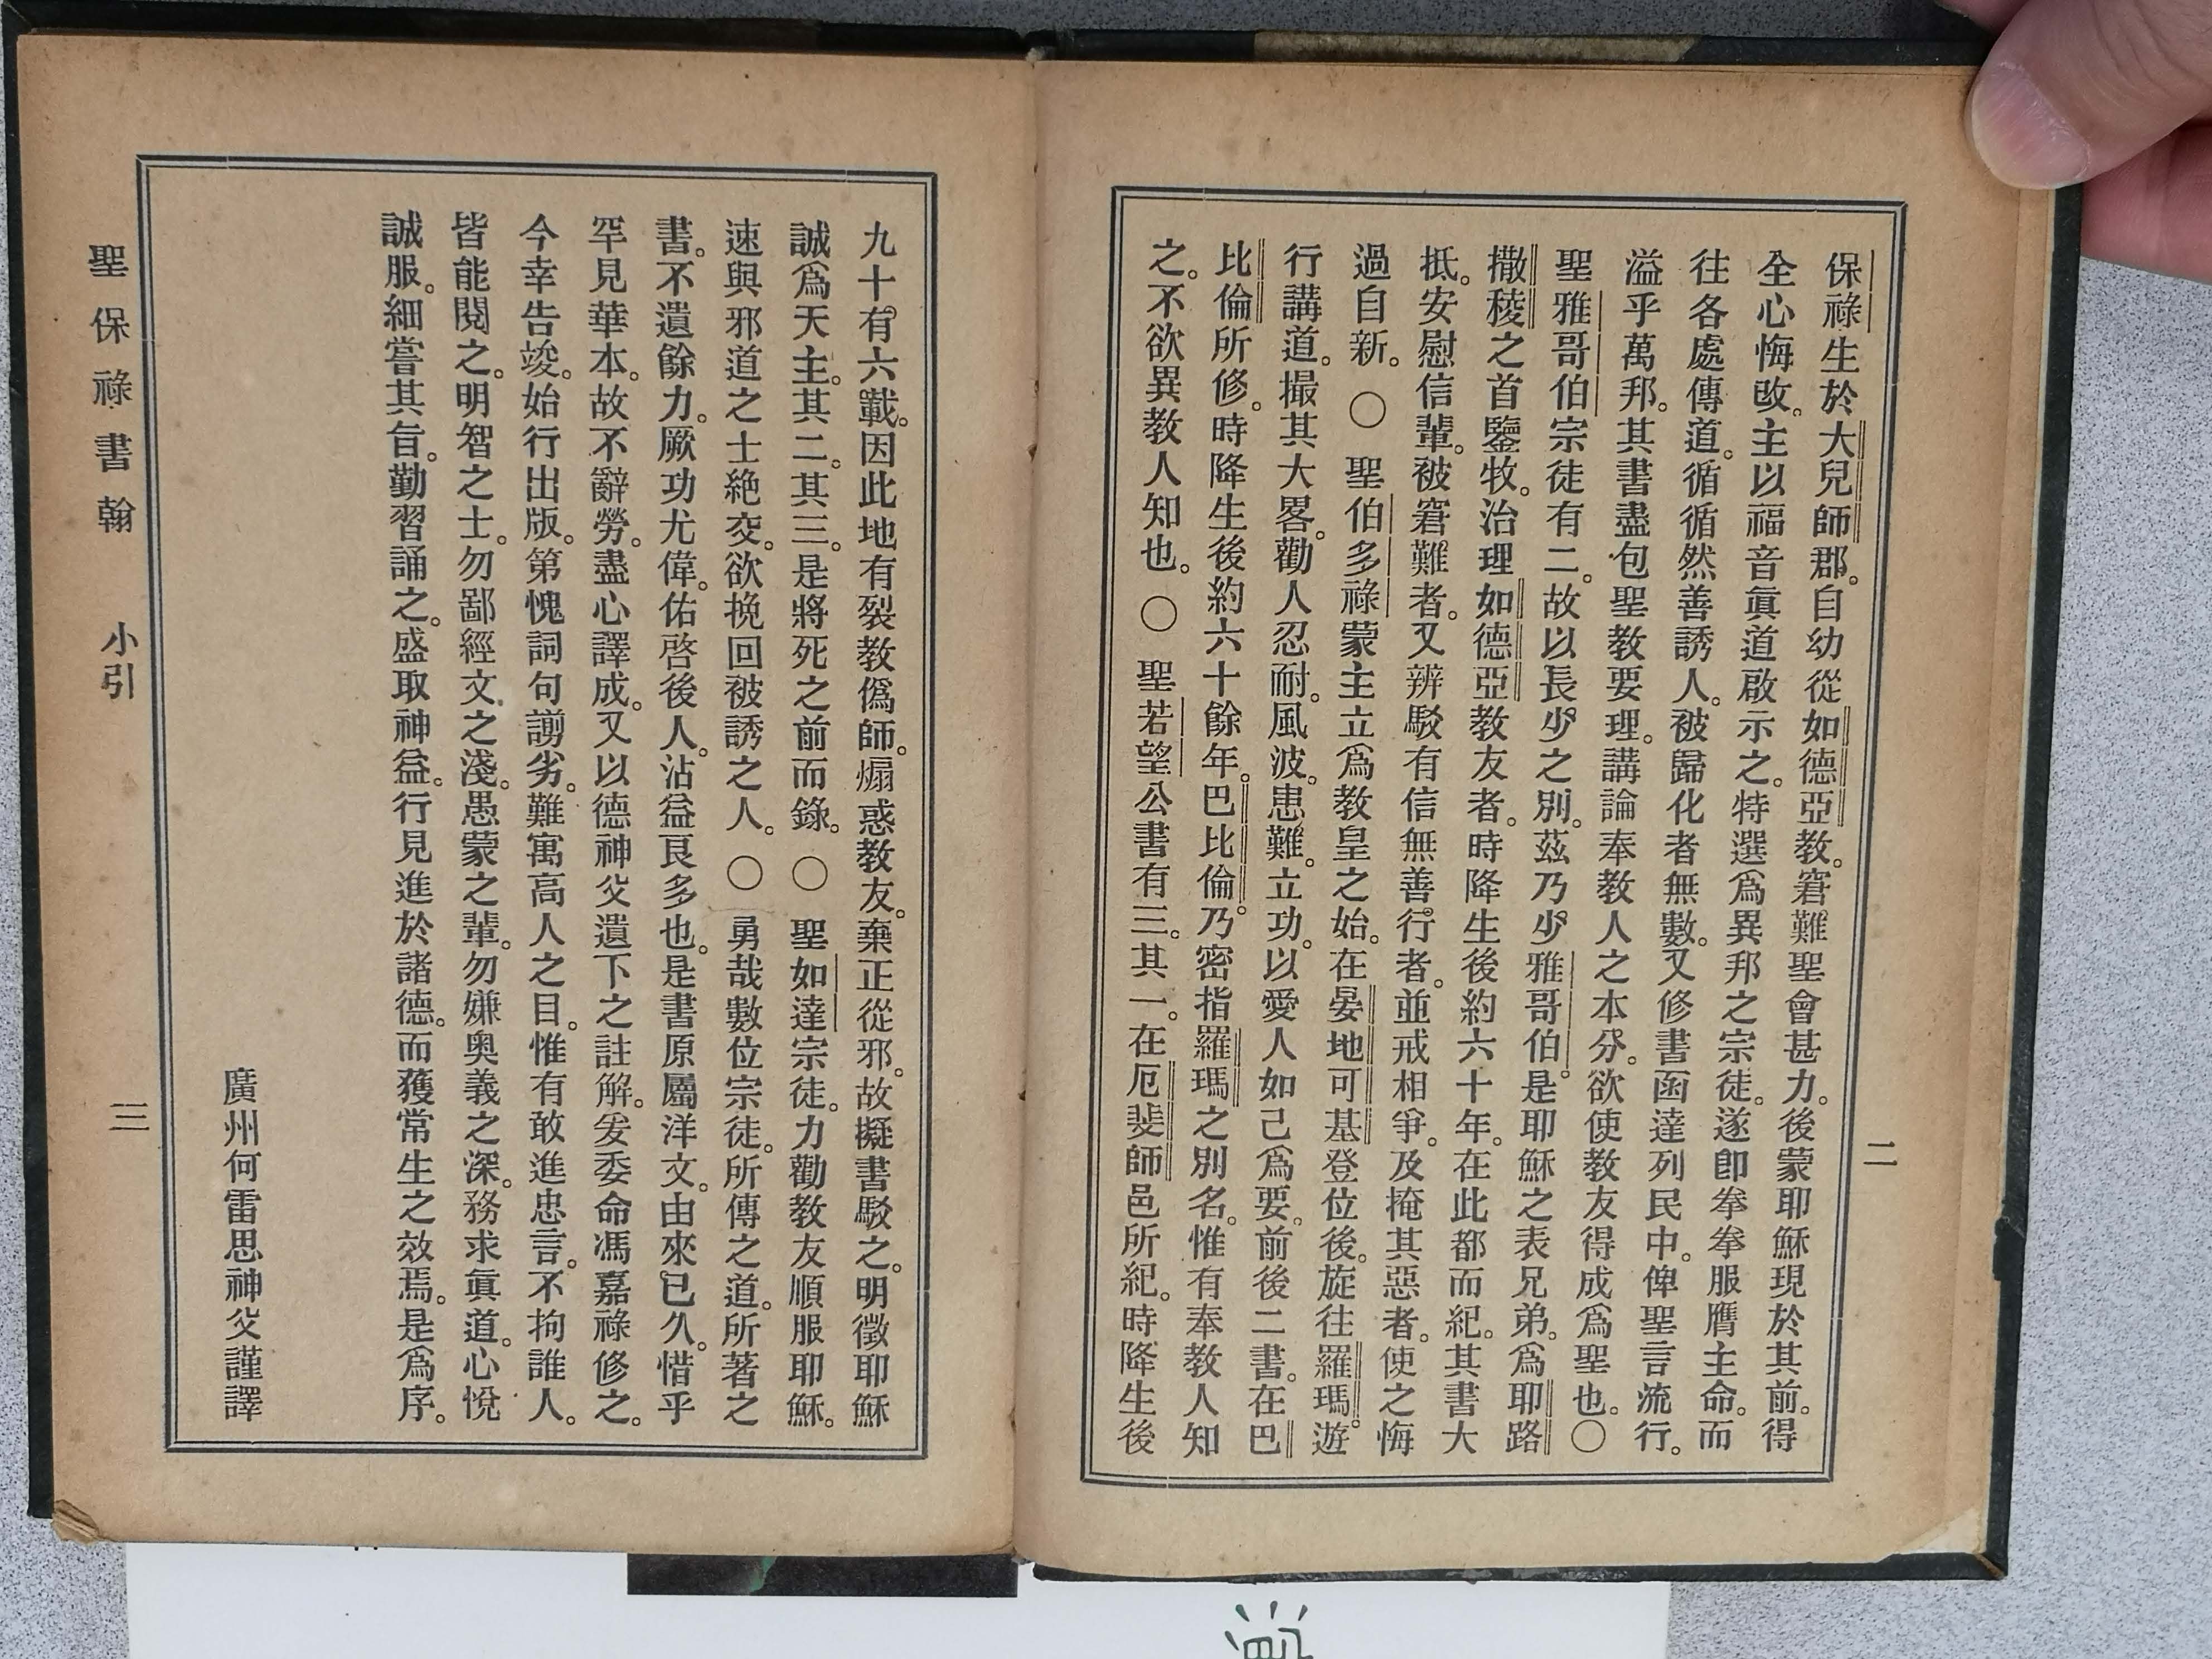 二
保祿生於大兒師郡。自幼從如德亞教。窘難聖會甚力。後蒙耶穌現於其前。得
全心悔改。主以福音眞道啟示之。特選爲異邦之宗徒。遂卽拳拳服膺主命。而
往各處傳道。循循然善誘人。被歸化者無數。又修書函達列民中。俾聖言流行。
溢乎萬邦。其書盡包聖教要理。講論奉教人之本分。欲使教友得成爲聖也。〇
聖雅哥伯宗徒有二。故以長少之別。茲乃少雅哥伯。是耶穌之表兄弟。爲耶路
撒稜之首鑒牧。治理如德亞教友者。時降生後約六十年。在此都而紀。其書大
抵。安慰信輩。被窘難者。又辨駁有信無善行者。並戒相爭。及掩其惡者。使之悔
過自新。〇 聖伯多祿蒙主立爲教皇之始。在晏地可基登位後。旋往羅瑪。遊
行講道。撮其大畧。勸人忍耐。風波。患難。立功。以愛人如己爲要。前後二書。在巴
比倫所修。時降生後約六十餘年。巴比倫。乃密指羅瑪之別名。惟有奉教人知
之。不欲異教人知也。〇 聖若望公書有三。其一。在厄斐師邑所紀。時降生後
九十。有六載。因此地有裂教僞師。煽惑教友。棄正從邪。故擬書駁之。明徵耶穌
誠爲天主。其二。其三。是將死之前而錄。〇 聖如達宗徒。力勸教友順服耶穌。
速與邪道之士絶交。欲挽回被誘之人。〇 勇哉數位宗徒。所傳之道。所著之
書。不遺餘力。厥功尤偉。佑啓後人。沾益良多也。是書原屬洋文。由來已久。惜乎
罕見華本。故不辭勞。盡心譯成。又以德神父遺下之註解。爰委命馮嘉祿修之。
今幸告竣。始行出版。第愧詞句謭劣。難寓高人之目。惟有敢進忠言。不拘誰人。
皆能閱之。明智之士。勿鄙經文之淺。愚蒙之輩。勿嫌奥義之深。務求眞道。心悅
誠服。細嘗其旨。勤習誦之。盛取神益。行見進於諸德。而獲常生之效焉。是爲序。
廣州何雷思神父謹譯
聖保祿書翰 小引 三